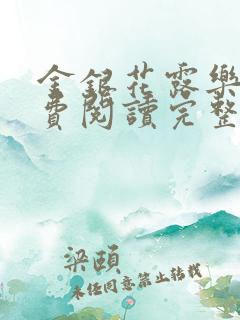 金銀花露樂
費閱讀完整
梁頤
未經同意禁止轉載